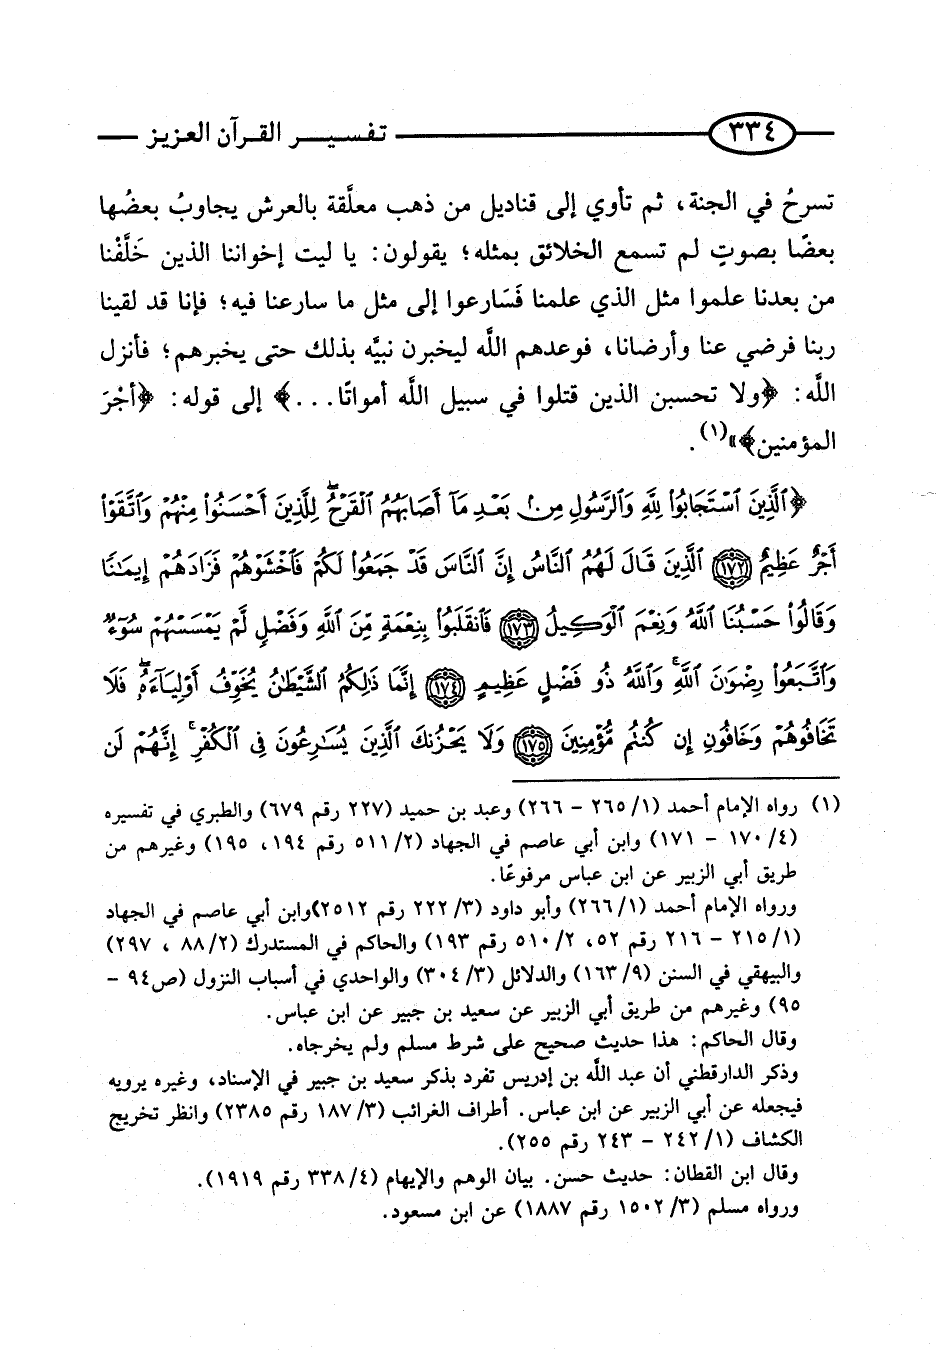 ٣٣٤ تفسير القرآن العزيز
تسرحُ في الجنة، ثم تأوي إلى قناديل من ذهب معلَّقة بالعرش يجاوبُ بعضُها
بعضًا بصوتٍ لم تسمع الخلائق بمثله؛ يقولون: يا ليت إخواننا الذين خَلَّفْنا
من بعدنا علموا مثل الذي علمنا فَسَارعوا إلى مثل ما سارعنا فيه؛ فإنا قد لقينا
ربنا فرضي عنا وأرضانا، فوعدهم اللَّه ليخبرن نبيَّه بذلك حتى يخبرهم؛ فأنزل
اللَّه: ﴿ولا تحسبن الذين قتلوا في سبيل اللَّه أمواتًا...﴾ إلى قوله: ﴿أجْرَ
المؤمنين﴾»(١).
﴿ٱلَّذِينَ ٱسْتَجَابُوا۟ لِلَّهِ وَٱلرَّسُولِ مِنۢ بَعْدِ مَآ أَصَابَهُمُ ٱلْقَرْحُ ۚ لِلَّذِينَ أَحْسَنُوا۟ مِنْهُمْ وَٱتَّقَوْا۟
أَجْرٌ عَظِيمٌ ١٧٢ ٱلَّذِينَ قَالَ لَهُمُ ٱلنَّاسُ إِنَّ ٱلنَّاسَ قَدْ جَمَعُوا۟ لَكُمْ فَٱخْشَوْهُمْ فَزَادَهُمْ إِيمَـٰنًا
وَقَالُوا۟ حَسْبُنَا ٱللَّهُ وَنِعْمَ ٱلْوَكِيلُ ١٧٣ فَٱنقَلَبُوا۟ بِنِعْمَةٍ مِّنَ ٱللَّهِ وَفَضْلٍ لَّمْ يَمْسَسْهُمْ سُوٓءٌ
وَٱتَّبَعُوا۟ رِضْوَٰنَ ٱللَّهِ ۗ وَٱللَّهُ ذُو فَضْلٍ عَظِيمٍ ١٧٤ إِنَّمَا ذَٰلِكُمُ ٱلشَّيْطَـٰنُ يُخَوِّفُ أَوْلِيَآءَهُۥ فَلَا
تَخَافُوهُمْ وَخَافُونِ إِن كُنتُم مُّؤْمِنِينَ ١٧٥ وَلَا يَحْزُنكَ ٱلَّذِينَ يُسَـٰرِعُونَ فِى ٱلْكُفْرِ ۚ إِنَّهُمْ لَن
(١) رواه الإمام أحمد (١/ ٢٦٥ - ٢٦٦) وعبد بن حميد (٢٢٧ رقم ٦٧٩) والطبري في تفسيره
(٤/ ١٧٠ - ١٧١) وابن أبي عاصم في الجهاد (٢/ ٥١١ رقم ١٩٤، ١٩٥) وغيرهم من
طريق أبي الزبير عن ابن عباس مرفوعًا.
ورواه الإمام أحمد (١/ ٢٦٦) وأبو داود (٣/ ٢٢٢ رقم ٢٥١٢)وابن أبي عاصم في الجهاد
(١/ ٢١٥ - ٢١٦ رقم ٥٢، ٢/ ٥١٠ رقم ١٩٣) والحاكم في المستدرك (٢/ ٨٨، ٢٩٧)
والبيهقي في السنن (٩/ ١٦٣) والدلائل (٣/ ٣٠٤) والواحدي في أسباب النزول (ص٩٤ -
٩٥) وغيرهم من طريق أبي الزبير عن سعيد بن جبير عن ابن عباس.
وقال الحاكم: هذا حديث صحيح على شرط مسلم ولم يخرجاه.
وذكر الدارقطني أن عبد اللَّه بن إدريس تفرد بذكر سعيد بن جبير في الإسناد، وغيره يرويه
فيجعله عن أبي الزبير عن ابن عباس. أطراف الغرائب (٣/ ١٨٧ رقم ٢٣٨٥) وانظر تخريج
الكشاف (١/ ٢٤٢ - ٢٤٣ رقم ٢٥٥).
وقال ابن القطان: حديث حسن. بيان الوهم والإيهام (٤/ ٣٣٨ رقم ١٩١٩).
ورواه مسلم (٣/ ١٥٠٢ رقم ١٨٨٧) عن ابن مسعود.